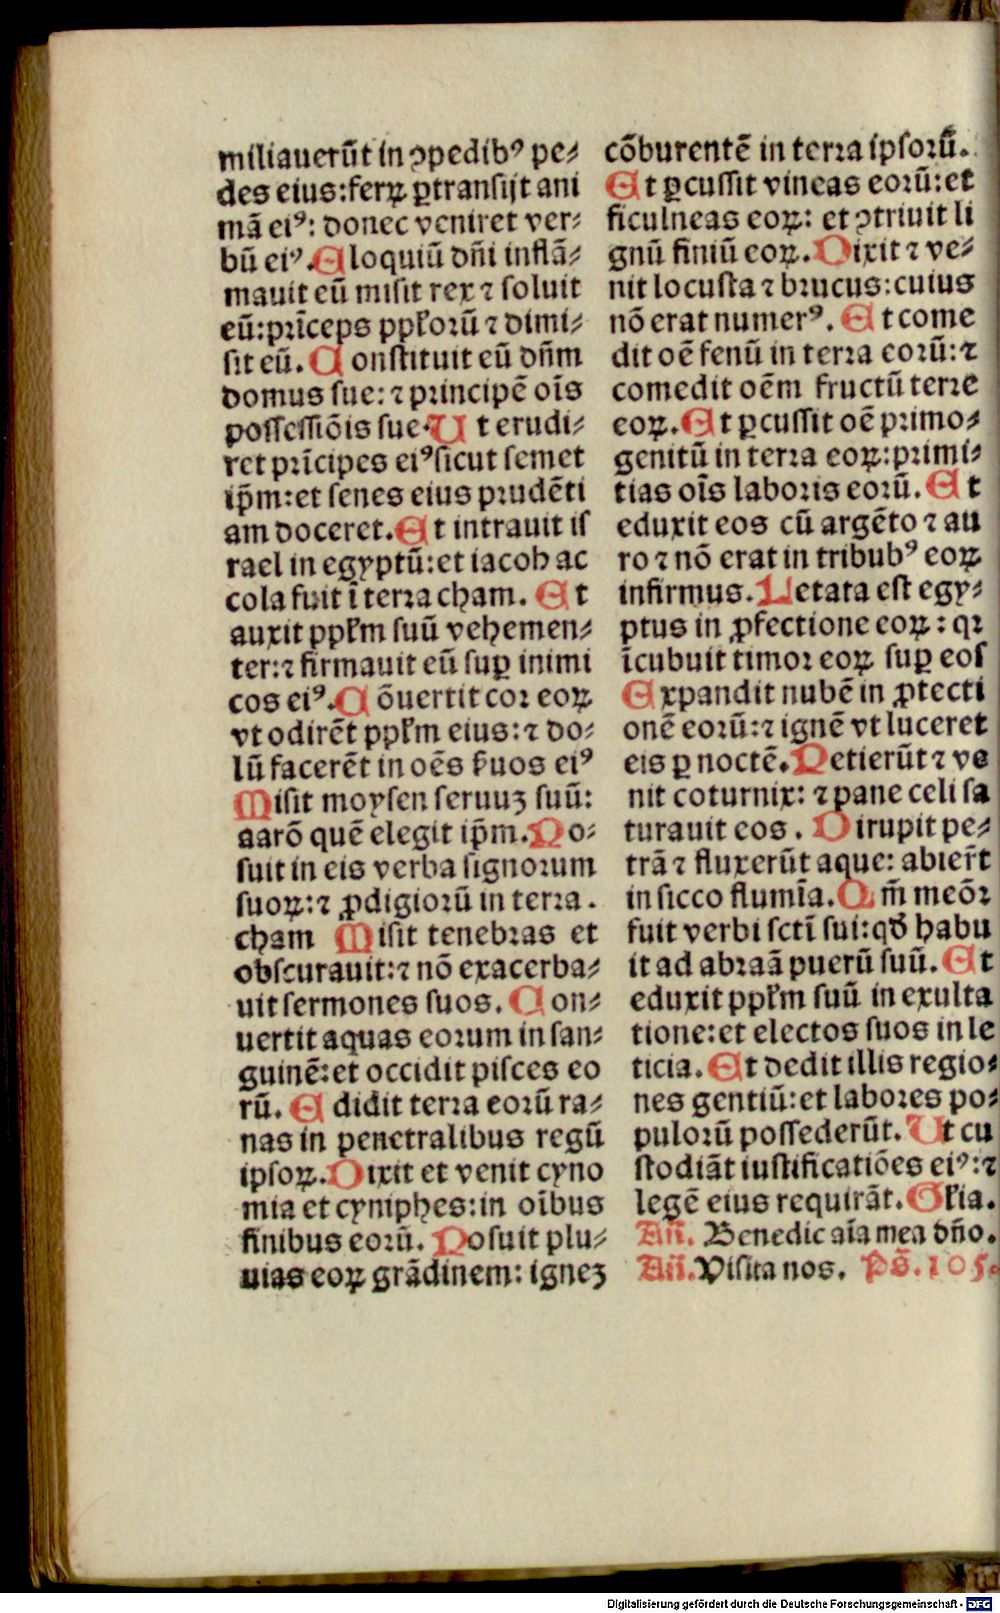 miliauerūt in ꝯpedibꝰ pe⸗
des eius:ferꝝ ꝑtransijt ani
mā eiꝰ: donec veniret ver⸗
bū eiꝰ. Eloquiū dn̄i inflā⸗
mauit eū misit rex ⁊ soluit
eū:prīceps pp̄loꝛū ⁊ dimi⸗
sit eū. Constituit eū dn̄m
domus sue: ⁊ principē oīs
possessiōis sue. Ut erudi⸗
ret prīcipes eiꝰ sicut semet
ip̄m:et senes eius prudēti
am doceret. Et intrauit iſ
rael in egyptū:et iacob ac
cola fuit ī terra cham. Et
auxit pp̄lm suū vehemen⸗
ter:⁊ firmauit eū suꝑ inimi
cos eiꝰ. Cōuertit coꝛ eoꝝ
vt odirēt pp̄lm eius: ⁊ do⸗
lū facerēt in oēs ẜuos eiꝰ
Misit moysen seruuꝫ suū:
aarō quē elegit ip̄m. Po⸗
suit in eis verba signoꝛum
suoꝝ:⁊ ꝓdigioꝛū in terra.
cham Misit tenebras et
obscurauit:⁊ nō exacerba⸗
uit sermones suos. Con⸗
uertit aquas eoꝛum in san⸗
guinē:et occidit pisces eo
rū. Edidit terra eoꝛū ra⸗
nas in penetralibus regū
ipsoꝝ. Dixit et venit cyno
mia et cyniphes:in oībus
finibus eoꝛū. Posuit plu⸗
uias eoꝝ grādinem: igneꝫ
cōburentē in terra ipsoꝛū.
Et ꝑcussit vineas eoꝛū:et
ficulneas eoꝝ: et ꝯtriuit li
gnū finiū eoꝝ. Dixit ⁊ ve⸗
nit locusta ⁊ brucus:cuius
nō erat numerꝰ. Et come
dit oē fenū in terra eoꝛū:⁊
comedit oēm fructū terre
eoꝝ. Et ꝑcussit oē primo⸗
genitū in terra eoꝝ:primi⸗
tias oīs laboꝛis eoꝛū. Et
eduxit eos cū argēto ⁊ au
ro ⁊ nō erat in tribubꝰ eoꝝ
infirmus. Letata est egy⸗
ptus in ꝓfectione eoꝝ : qꝛ
īcubuit timoꝛ eoꝝ suꝑ eos
Expandit nubē in ꝓtecti
onē eoꝛū:⁊ ignē vt luceret
eis ꝑ noctē. Petierūt ⁊ ve
nit coturnix: ⁊ pane celi sa
turauit eos. Dirupit pe⸗
trā ⁊ fluxerūt aque: abier̄t
in sicco flumīa. Qm̄ meōꝛ
fuit verbi sctī sui:qđ habu
it ad abraā puerū suū. Et
eduxit pp̄lm suū in exulta
tione:et electos suos in le
ticia. Et dedit illis regio⸗
nes gentiū:et laboꝛes po⸗
puloꝛū possederūt. Ut cu
stodiāt iustificatiōes eiꝰ:⁊
legē eius requirāt. Gꝉia.
Añ. Benedic aīa mea dn̄o.
Añ. Visita nos. Ps̄.105.
Digitalisierung gefördert durch die Deutsche Forschungsgemeinschaft - DFG